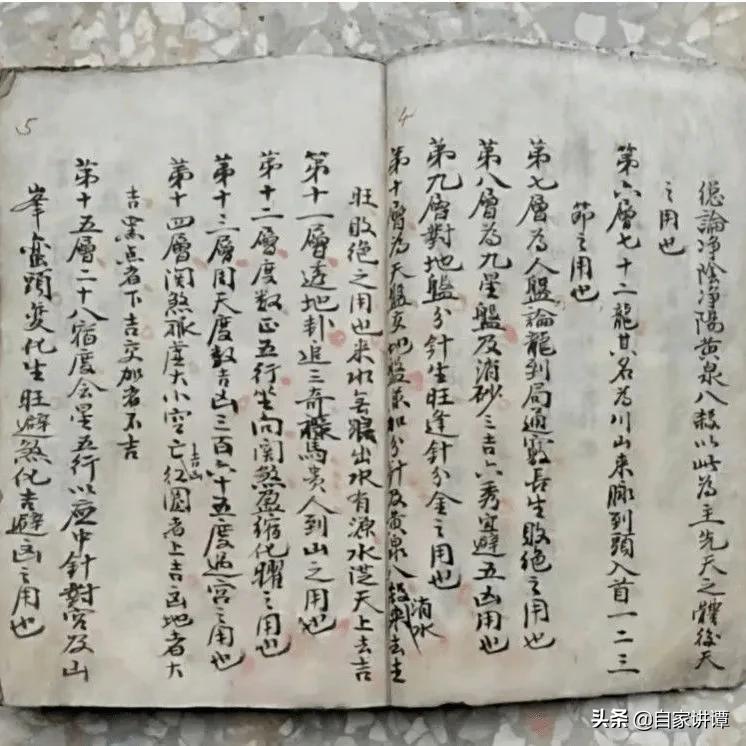 4
總論净陰净陽黄泉八殺以此為主先天之體後天
之用也
第六層七十二龍其名為川山来脉到頭入首一二三
節之用也
第七層為人盤論龍到局通竅長生敗絶之用也
第八層為九星盤及消砂三吉六秀宜避五凶用也
第九層對地盤分針生旺逢針分金之用也
第十層為天盤 分針及黄泉八殺 去
消水
5
旺敗绝之用也来水 出水有源水從天上去吉
第十一層透地卦追三奇禄馬貴人到山之用也
第十二層度数正五行坐向関煞盈縮化曜之用也
第十三層周天度数吉凶三百六十五度過宮之用也
第十四層関煞 虚大小空亡红圈者上吉凶地者大
吉凶
吉黑点者下吉交加者不吉
第十五層二十八宿度会星五行以 中針對宫及山
峯巒頭变化生旺避煞化吉避凶之用也
头条 @自家讲谭